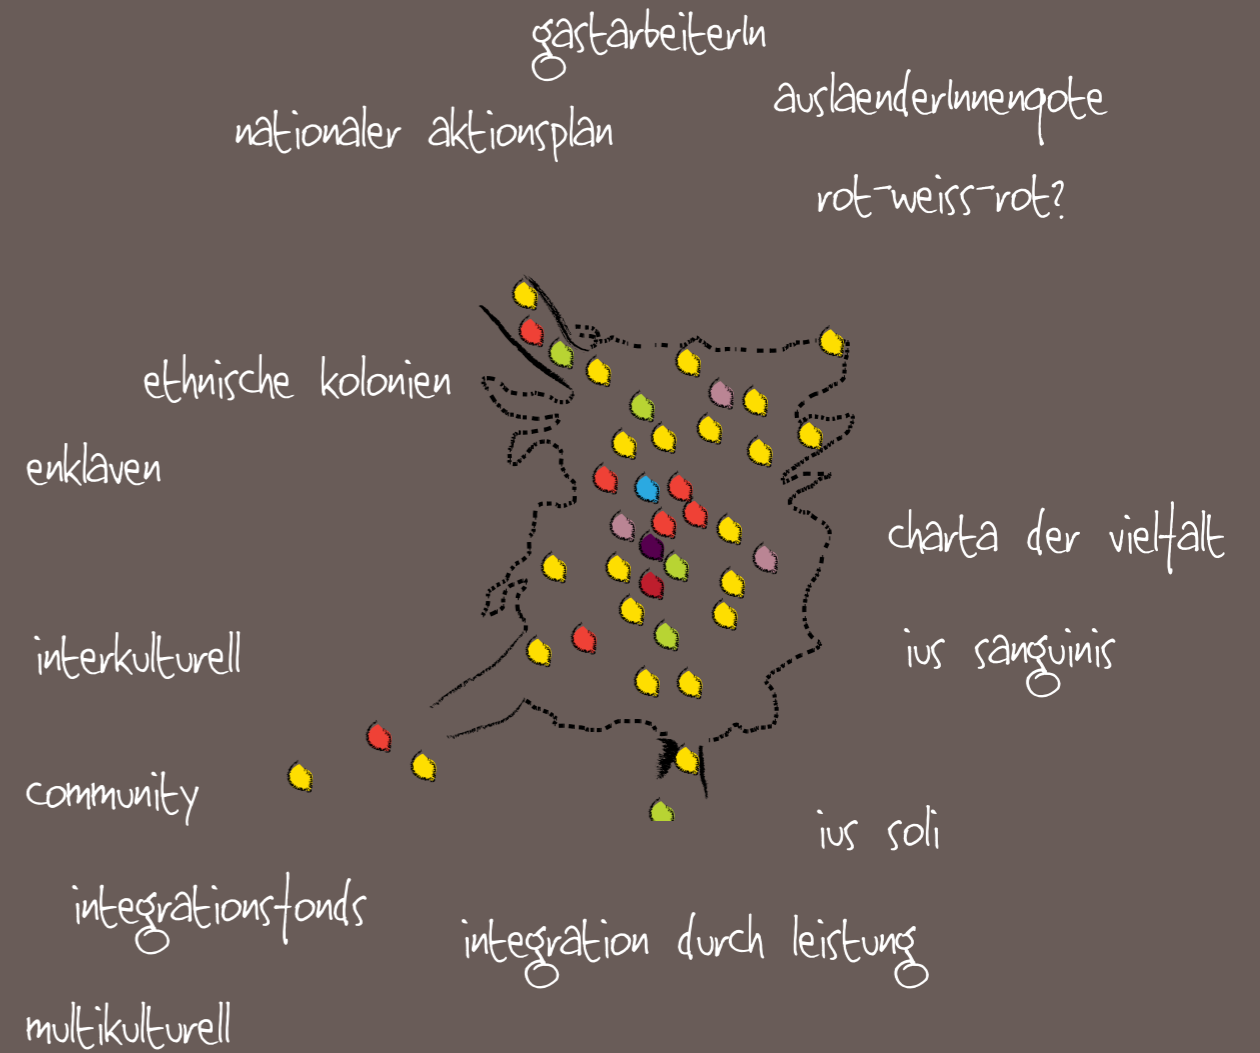 gastarbeiterIn
auslaenderInnenqote
nationaler aktionsplan
rot-weiss-rot?
ethnische kolonien
enklaven
charta der vielfalt
interkulturell
ius sanguinis
community
ius soli
integrationsfonds
integration durch leistung
multikulturell